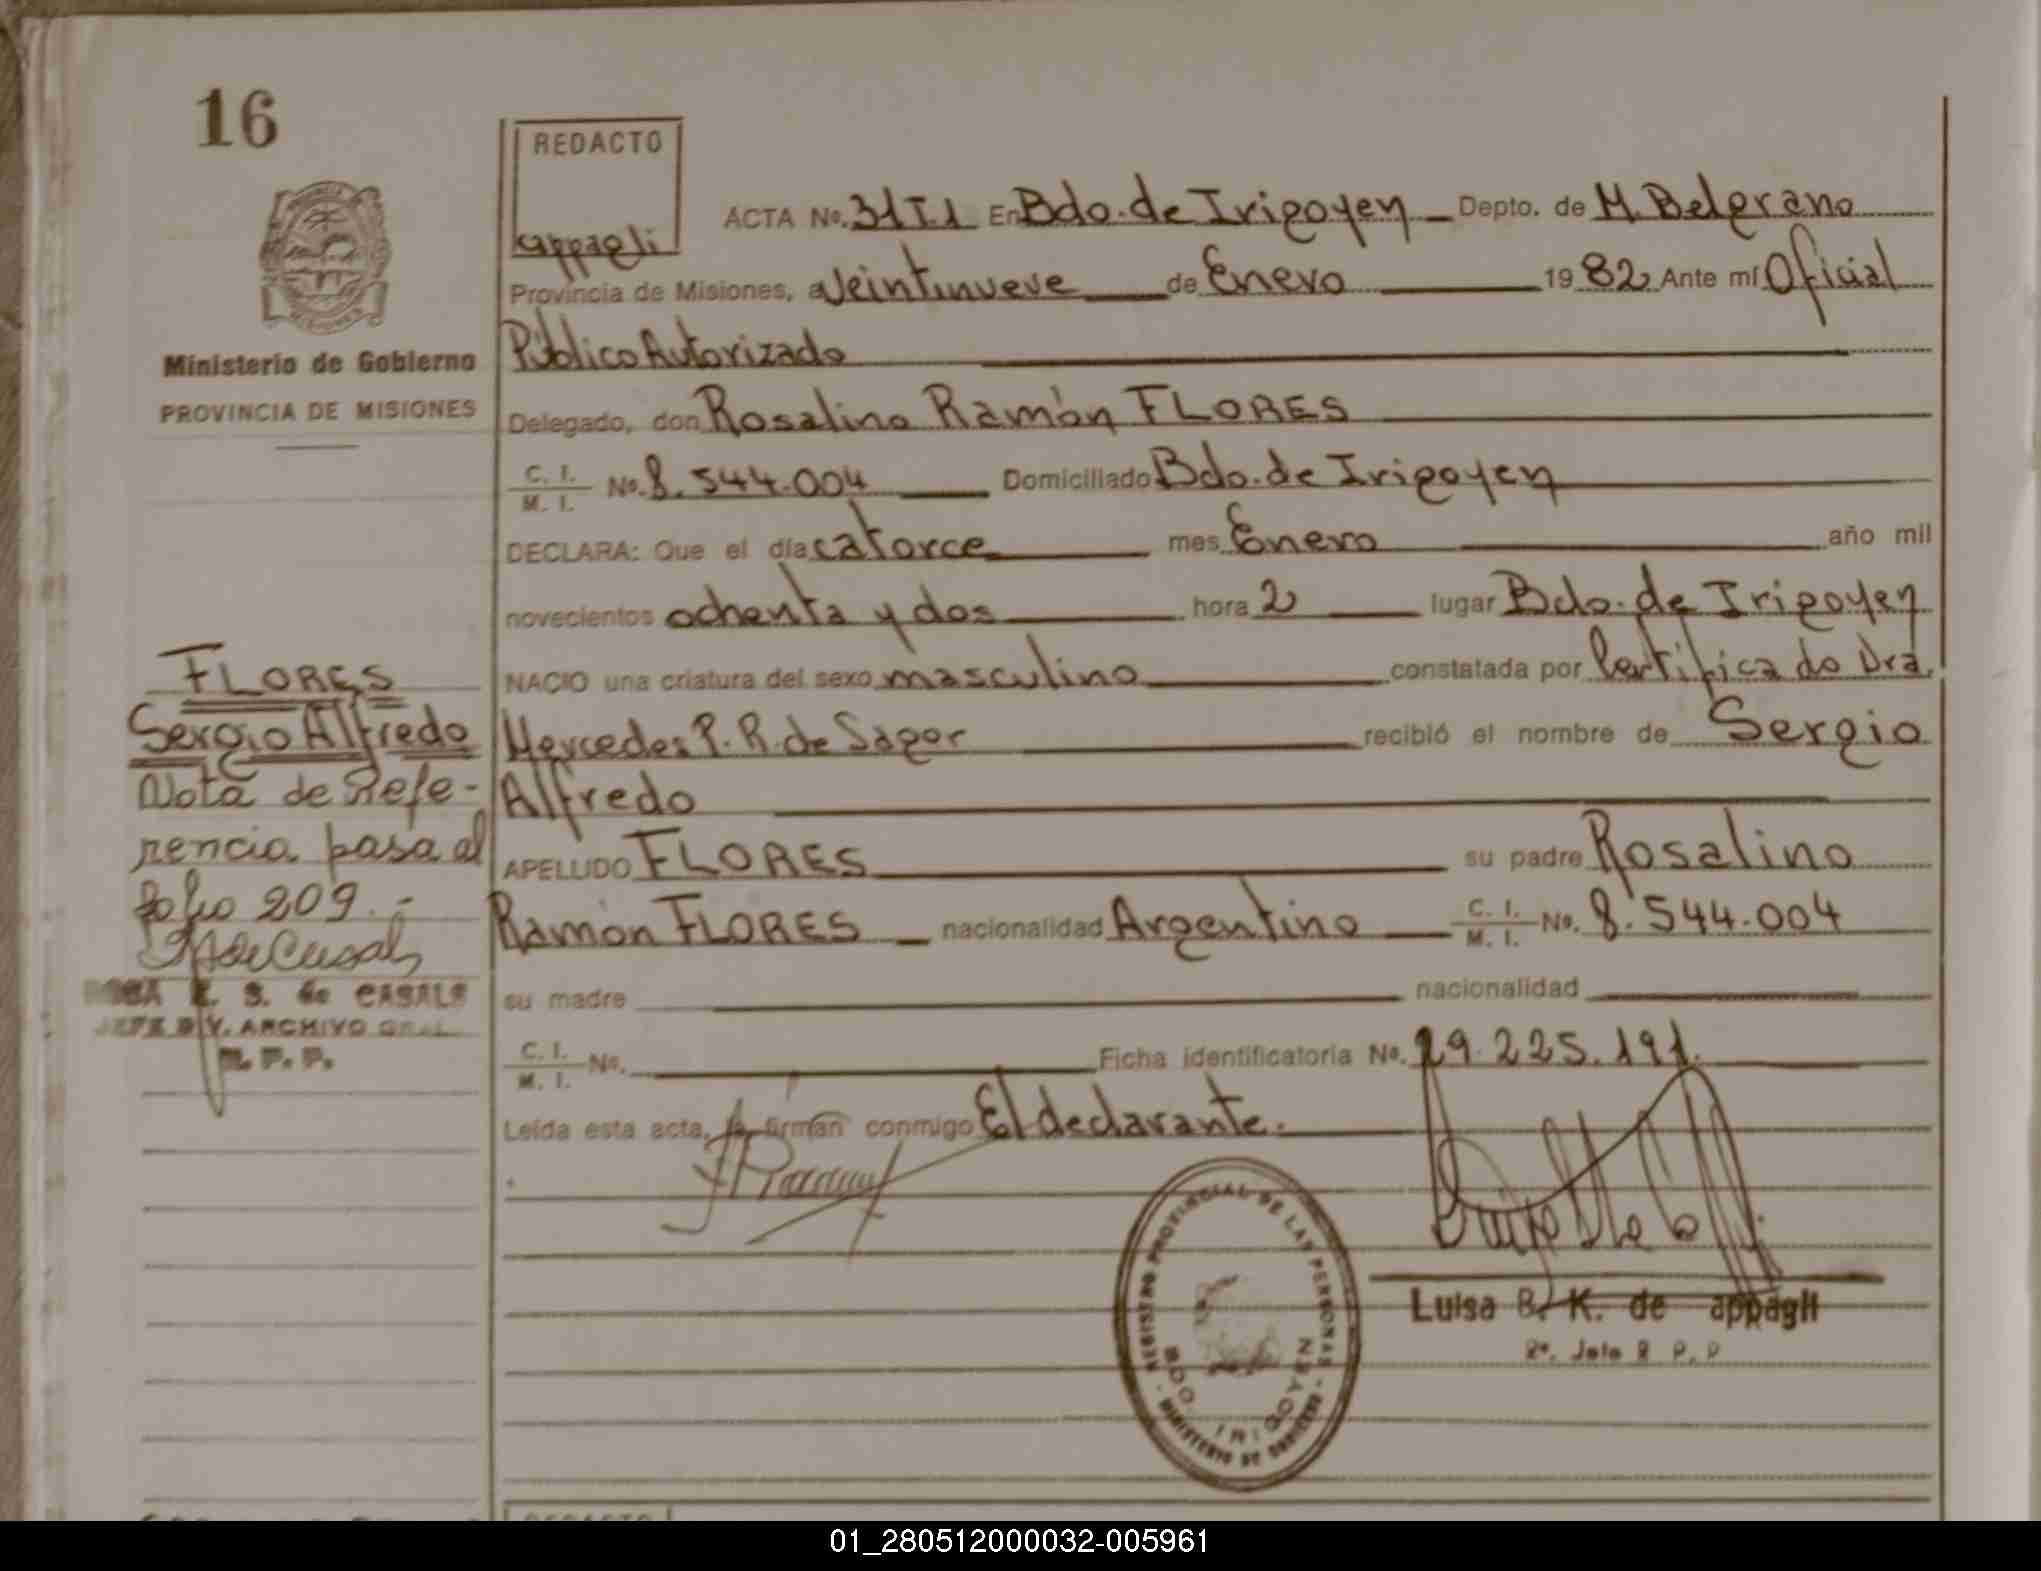 16
REDACTO
cappagli
ACTA No. 31 T.1 En Bdo. de Irigoyen Depto. de M. Belgrano
Provincia de Misiones, a Veintinueve de Enero 1982 Ante mí Oficial
Público Autorizado
Delegado, don Rosalino Ramón FLORES
C. I. / M. I. No. 8.544.004 Domiciliado Bdo. de Irigoyen
DECLARA: Que el día catorce mes Enero año mil
novecientos ochenta y dos hora 2 lugar Bdo. de Irigoyen
NACIO una criatura del sexo masculino constatada por Certificado Dra.
Mercedes P. R. de Sager recibió el nombre de Sergio
Alfredo
APELLIDO FLORES su padre Rosalino
Ramón FLORES nacionalidad Argentino C. I. / M. I. No. 8.544.004
su madre nacionalidad
C. I. / M. I. No. Ficha identificatoria No. 29.225.191.
Leída esta acta, la firman conmigo El declarante.
Ministerio de Gobierno
PROVINCIA DE MISIONES
FLORES
Sergio Alfredo
Nota de Refe-
rencia pasa al
folio 209.-
ROSA E. S. de CASALS
JEFE DIV. ARCHIVO GRAL.
R. P. P.
REGISTRO PROVINCIAL DE LAS PERSONAS
BDO. IRIGOYEN
MINISTERIO DE GOBIERNO
Luisa B. K. de appagli
2º. Jefe R P. P
REDACTO
01_280512000032-005961